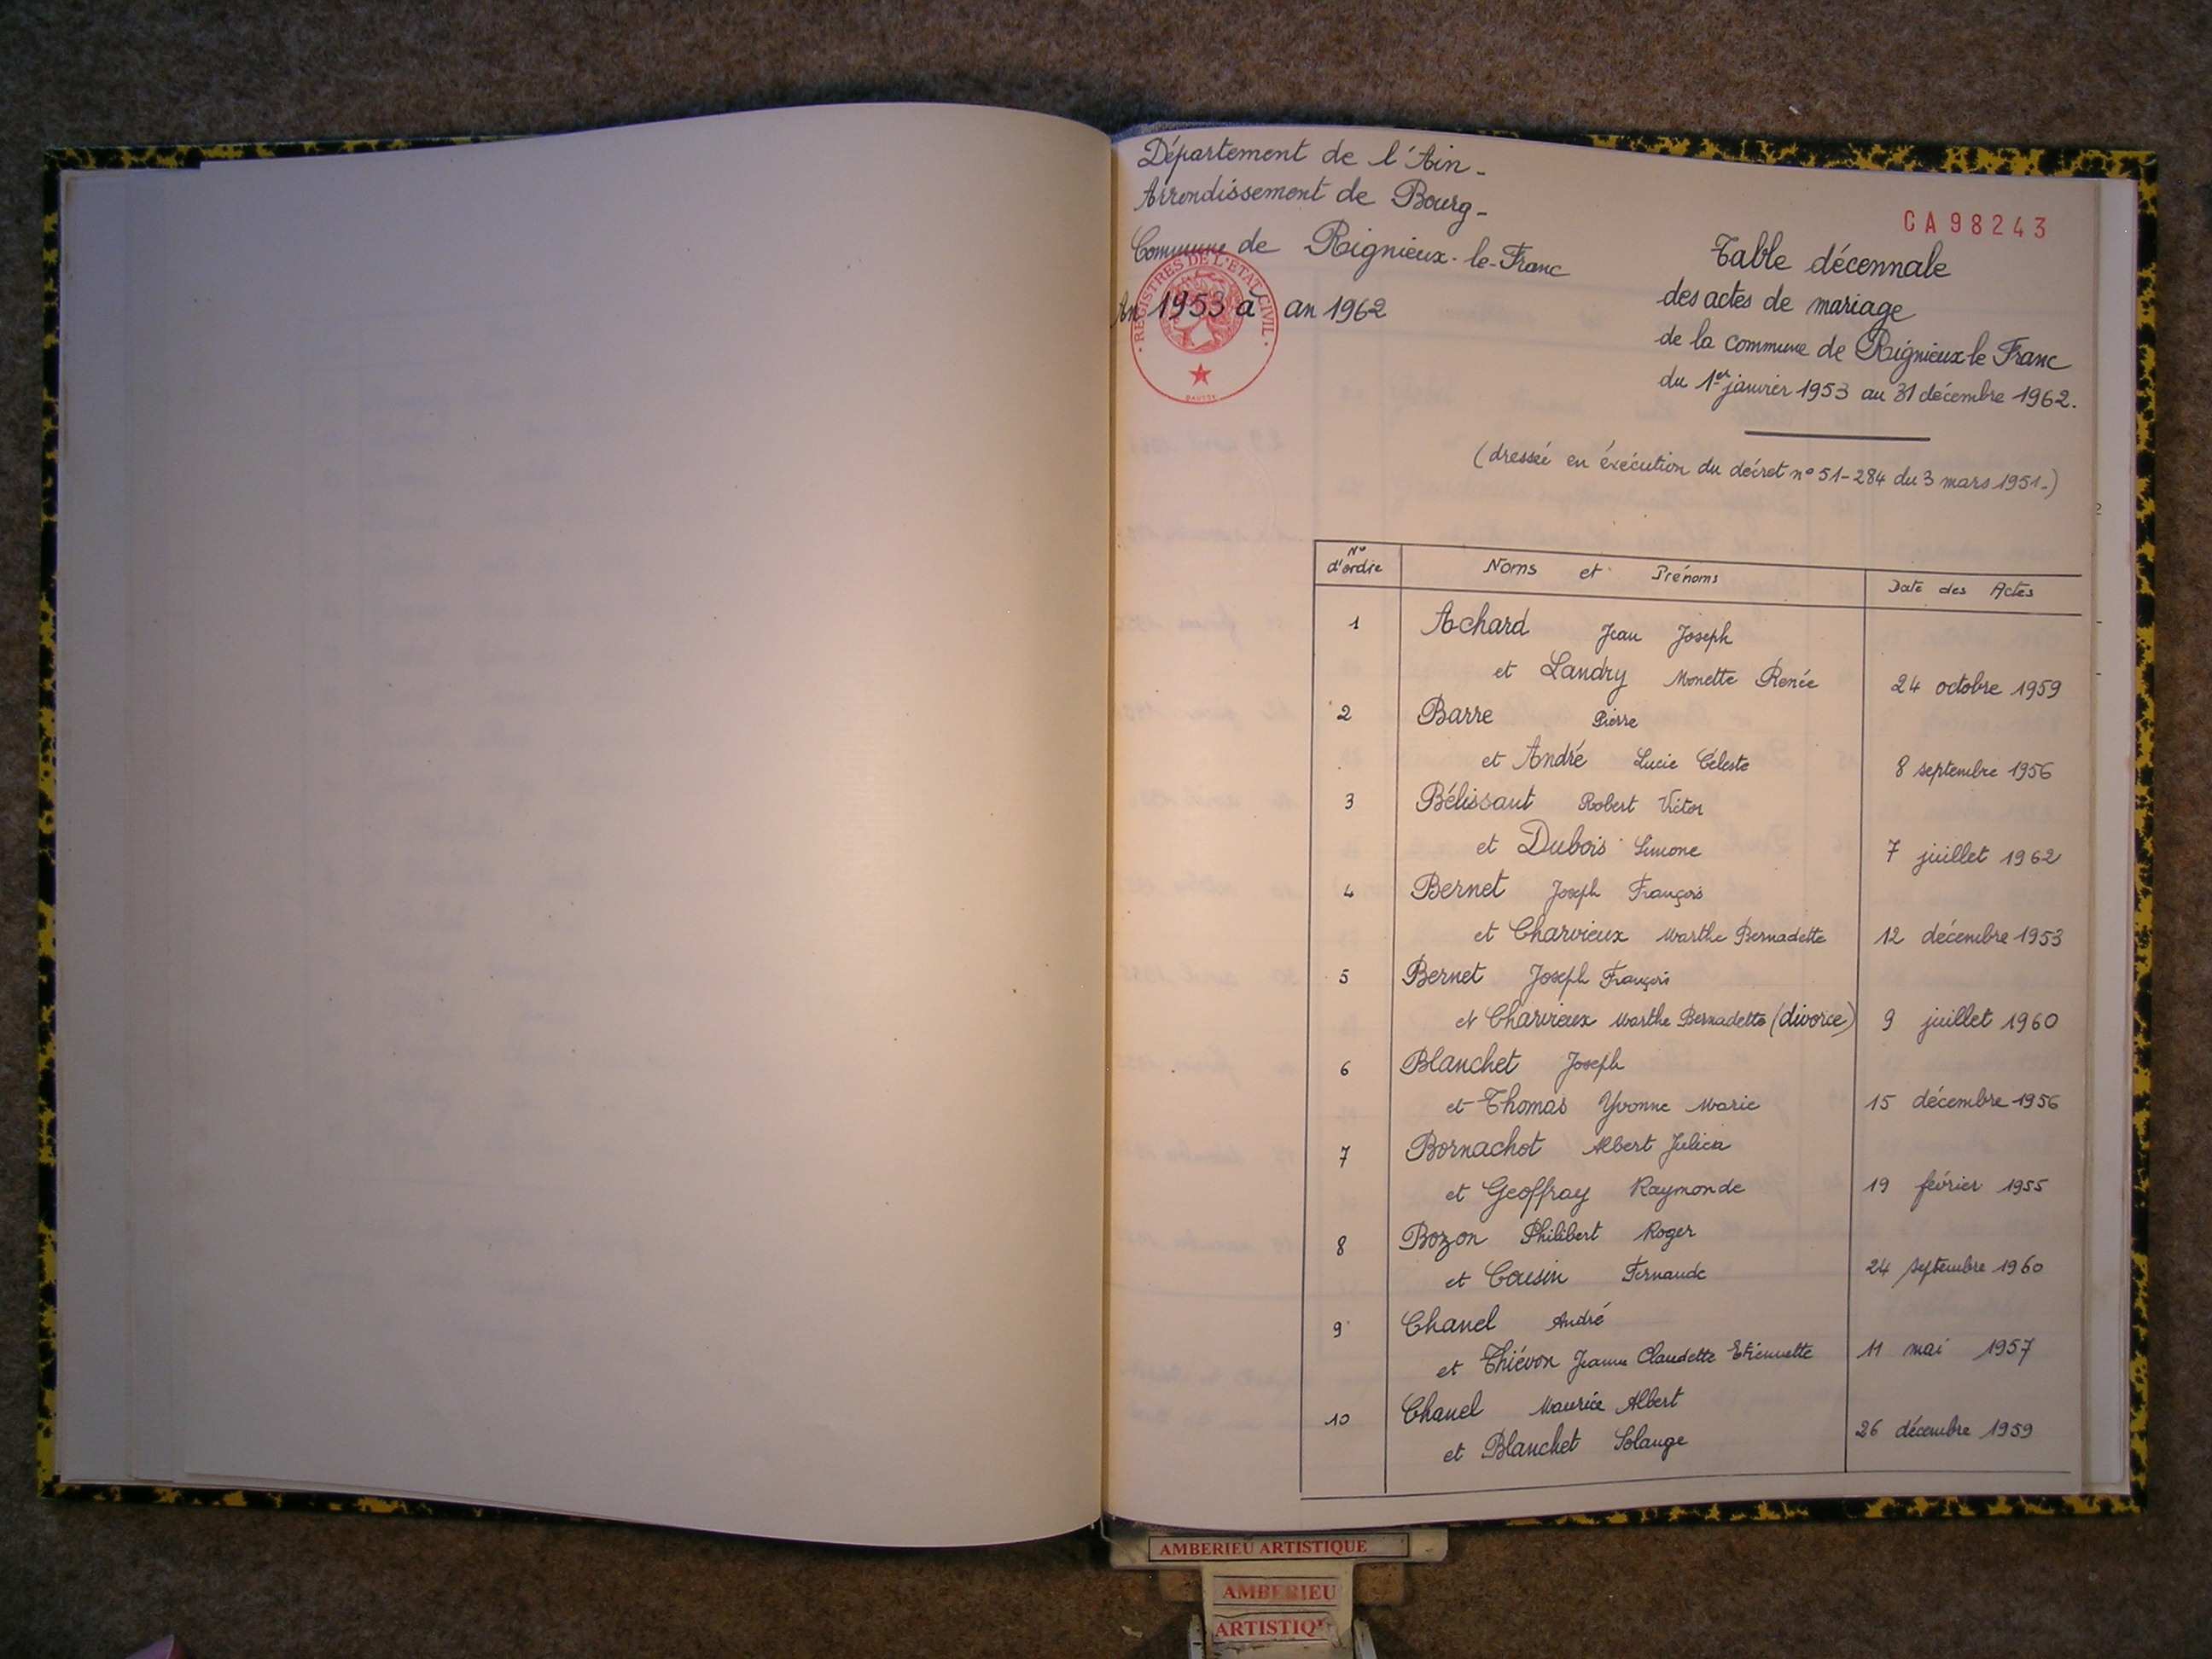 Département de l'Ain -
Arrondissement de Bourg -
Commune de Rignieux-le-Franc
An 1953 à an 1962
REGISTRES DE L'ETAT CIVIL
CA98243
Table décennale
des actes de mariage
de la commune de Rignieux le Franc
du 1er janvier 1953 au 31 décembre 1962.
(dressée en éxécution du décret n° 51-284 du 3 mars 1951-)
N° d'ordre Noms et Prénoms Date des Actes
1 Achard Jean Joseph
et Landry Monette Renée 24 octobre 1959
2 Barre Pierre
et André Lucie Céleste 8 septembre 1956
3 Bélissant Robert Victor
et Dubois Simone 7 juillet 1962
4 Bernet Joseph François
et Charvieux Marthe Bernadette 12 décembre 1953
5 Bernet Joseph François
et Charvieux Marthe Bernadette (divorce) 9 juillet 1960
6 Blanchet Joseph
et Thomas Yvonne Marie 15 décembre 1956
7 Bornachot Albert
et Geoffray Raymonde 19 février 1955
8 Bozon Philibert Roger
et Cousin Fernande 24 septembre 1960
9 Chanel André
et Thiévon Jeanne Claudette Etiennette 11 mai 1957
10 Chanel Maurice Albert
et Blanchet Solange 26 décembre 1959
AMBERIEU ARTISTIQUE
AMBERIEU
ARTISTIQ